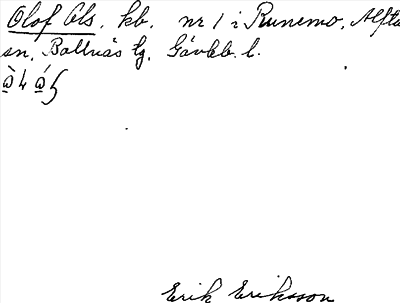 Olof Ols. kb. nr 1 i Runemo, Alfta
sn, Bollnäs tg, Gävleb. l.
Erik Eriksson